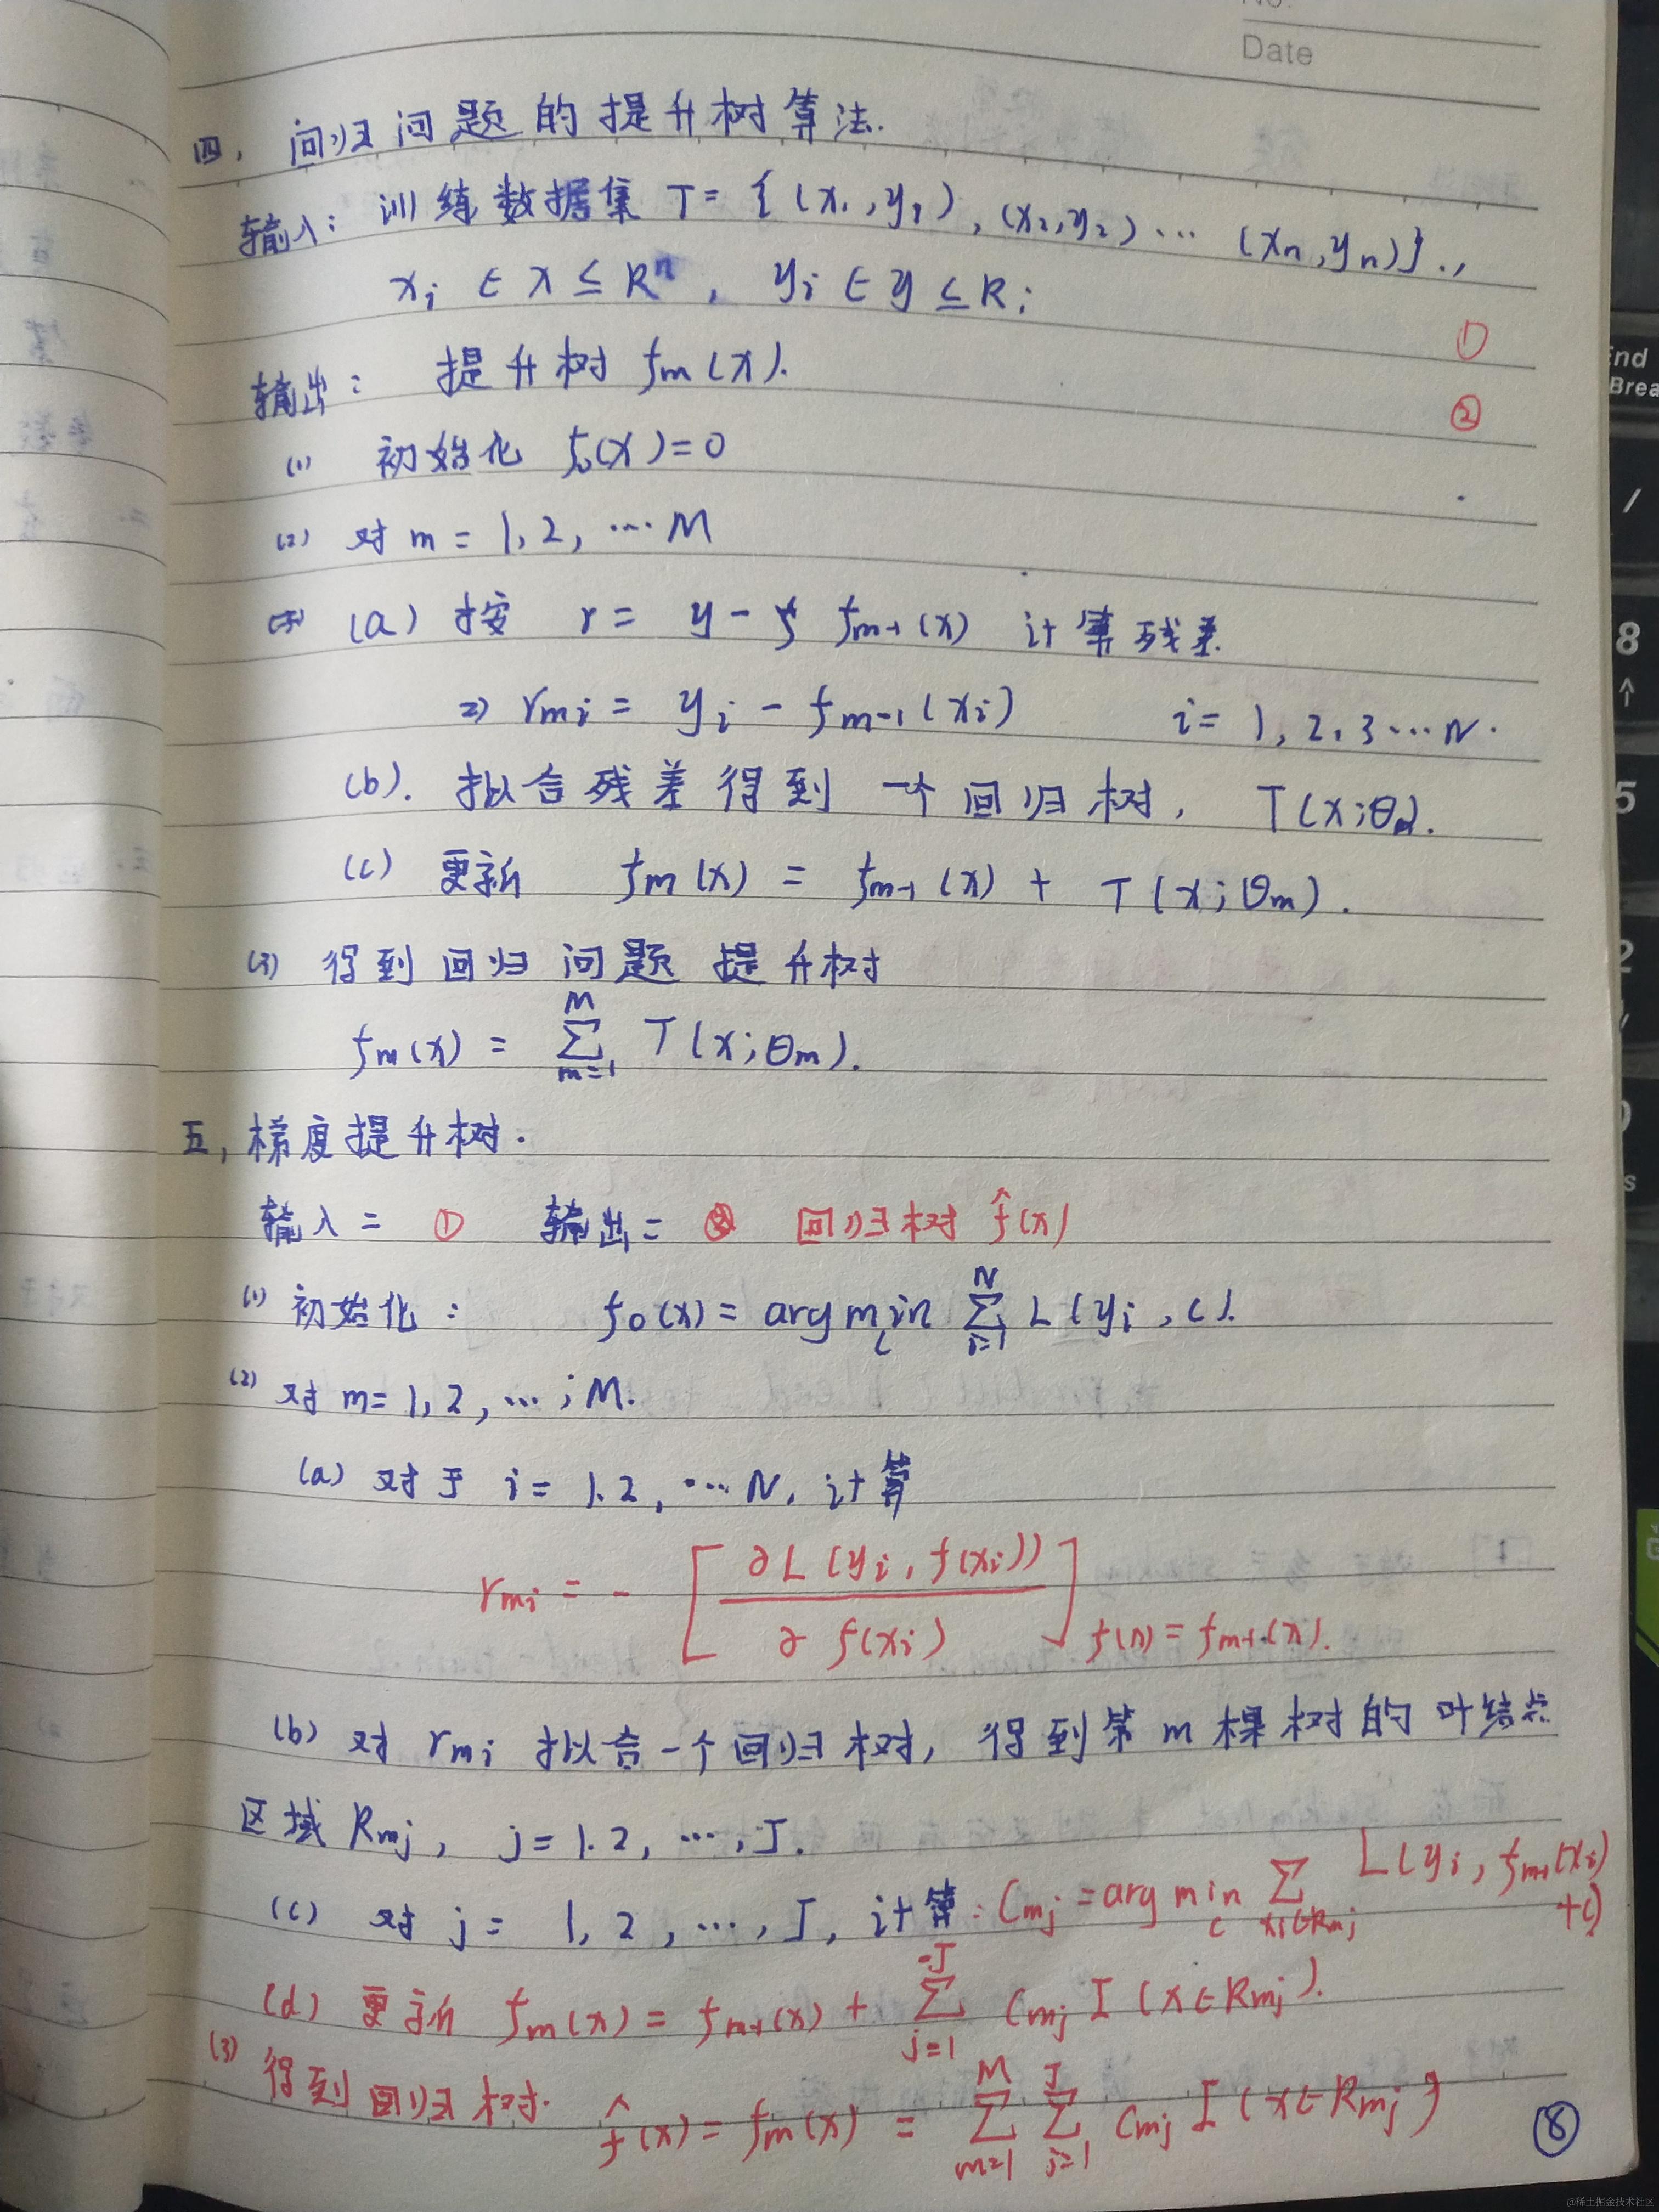 No.
Date
四, 回归问题的提升树算法.
输入: 训练数据集 T = {(x₁,y₁),(x₂,y₂)⋯(xn,yn)}.,
xi ∈ x ⊆ Rⁿ, yi ∈ y ⊆ R;
①
输出: 提升树 fm(x).
②
(1) 初始化 f₀(x)=0
(2) 对 m = 1,2,⋯M
(a) 按 r = y - fm-1(x) 计算残差.
⇒ rmi = yi - fm-1(xi) i = 1,2,3⋯N.
(b). 拟合残差得到一个回归树, T(x;θm).
(c) 更新 fm(x) = fm-1(x) + T(x;θm).
(3) 得到回归问题提升树
fM(x) = Σ_{m=1}^{M} T(x;θm).
五, 梯度提升树.
输入 = ① 输出 = 回归树 f̂(x)
(1) 初始化: f₀(x) = arg min_c Σ_{i=1}^{N} L(yi,c).
(2) 对 m=1,2,⋯,M.
(a) 对于 i = 1.2,⋯N, 计算
rmi = - [∂L(yi,f(xi)) / ∂f(xi)] f(x)=fm-1(x).
(b) 对 rmi 拟合一个回归树, 得到第 m 棵树的叶结点
区域 Rmj, j=1.2,⋯,J.
(c) 对 j = 1,2,⋯,J, 计算: Cmj = arg min_c Σ_{xi∈Rmj} L(yi,fm-1(xi)+c)
(d) 更新 fm(x) = fm-1(x) + Σ_{j=1}^{J} Cmj I(x∈Rmj).
(3) 得到回归树. f̂(x) = fM(x) = Σ_{m=1}^{M} Σ_{j=1}^{J} Cmj I(x∈Rmj)
⑧
End
Break
/
8
5
2
@稀土掘金技术社区